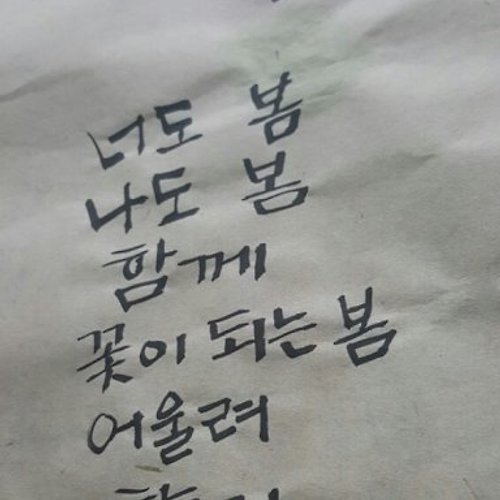 너도 봄
나도 봄
함께
꽃이 되는 봄
어울려